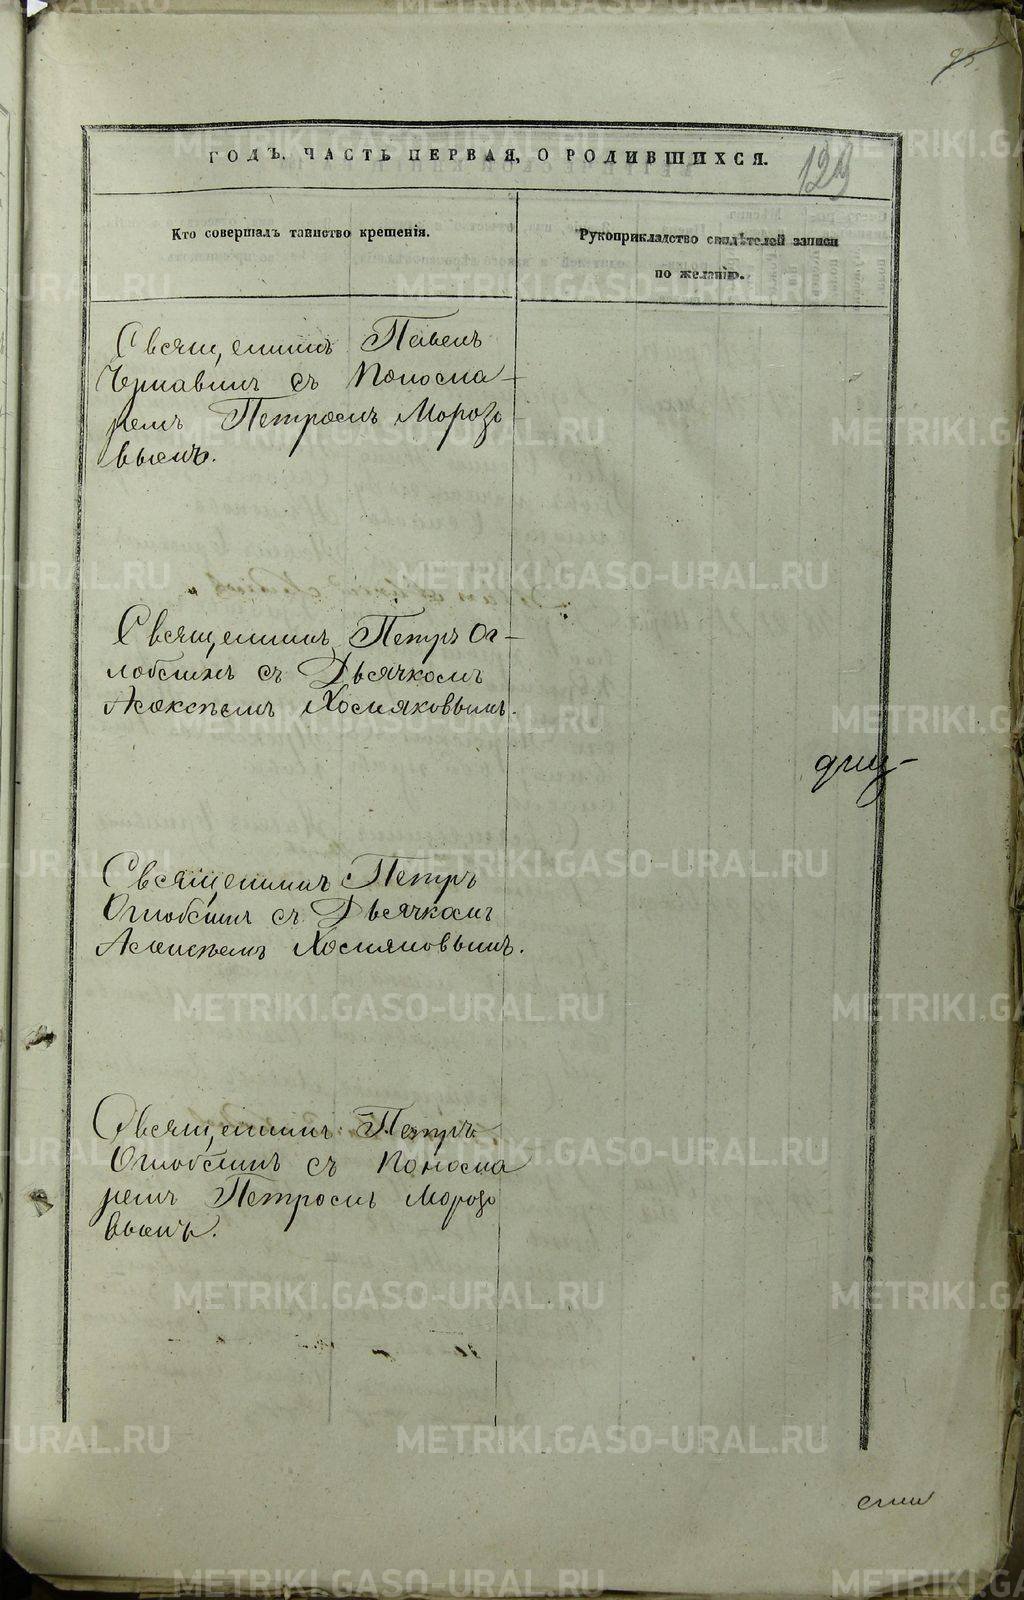 129
ГОДЪ. ЧАСТЬ ПЕРВАЯ, О РОДИВШИХСЯ.
Кто совершалъ таинство крещенія.
Рукоприкладство свидѣтелей записи
по желанію.
Священникъ Павелъ
Чернавинъ съ Понома-
ремъ Петромъ Морозо
вымъ.
Священникъ Петръ Ог-
лоблинъ съ Дьячкомъ
Алексѣемъ Хомяковымъ.
Священникъ Петръ
Оглоблинъ съ Дьячкомъ
Алексѣемъ Хомяковымъ.
Священникъ Петръ
Оглоблинъ съ Понома
ремъ Петромъ Морозо
вымъ.
METRIKI.GASO-URAL.RU